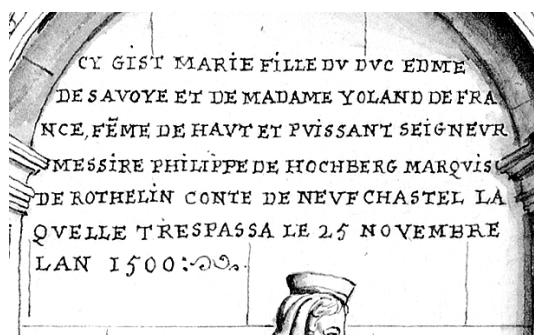 CY GIST MARIE FILLE DV DVC EDME
DE SAVOYE ET DE MADAME YOLAND DE FRA
NCE, FẼME DE HAVT ET PVISSANT SEIGNEVR
MESSIRE PHILIPPE DE HOCHBERG MARQVIS
DE ROTHELIN CONTE DE NEVFCHASTEL LA
QVELLE TRESPASSA LE 25 NOVEMBRE
LAN 1500: